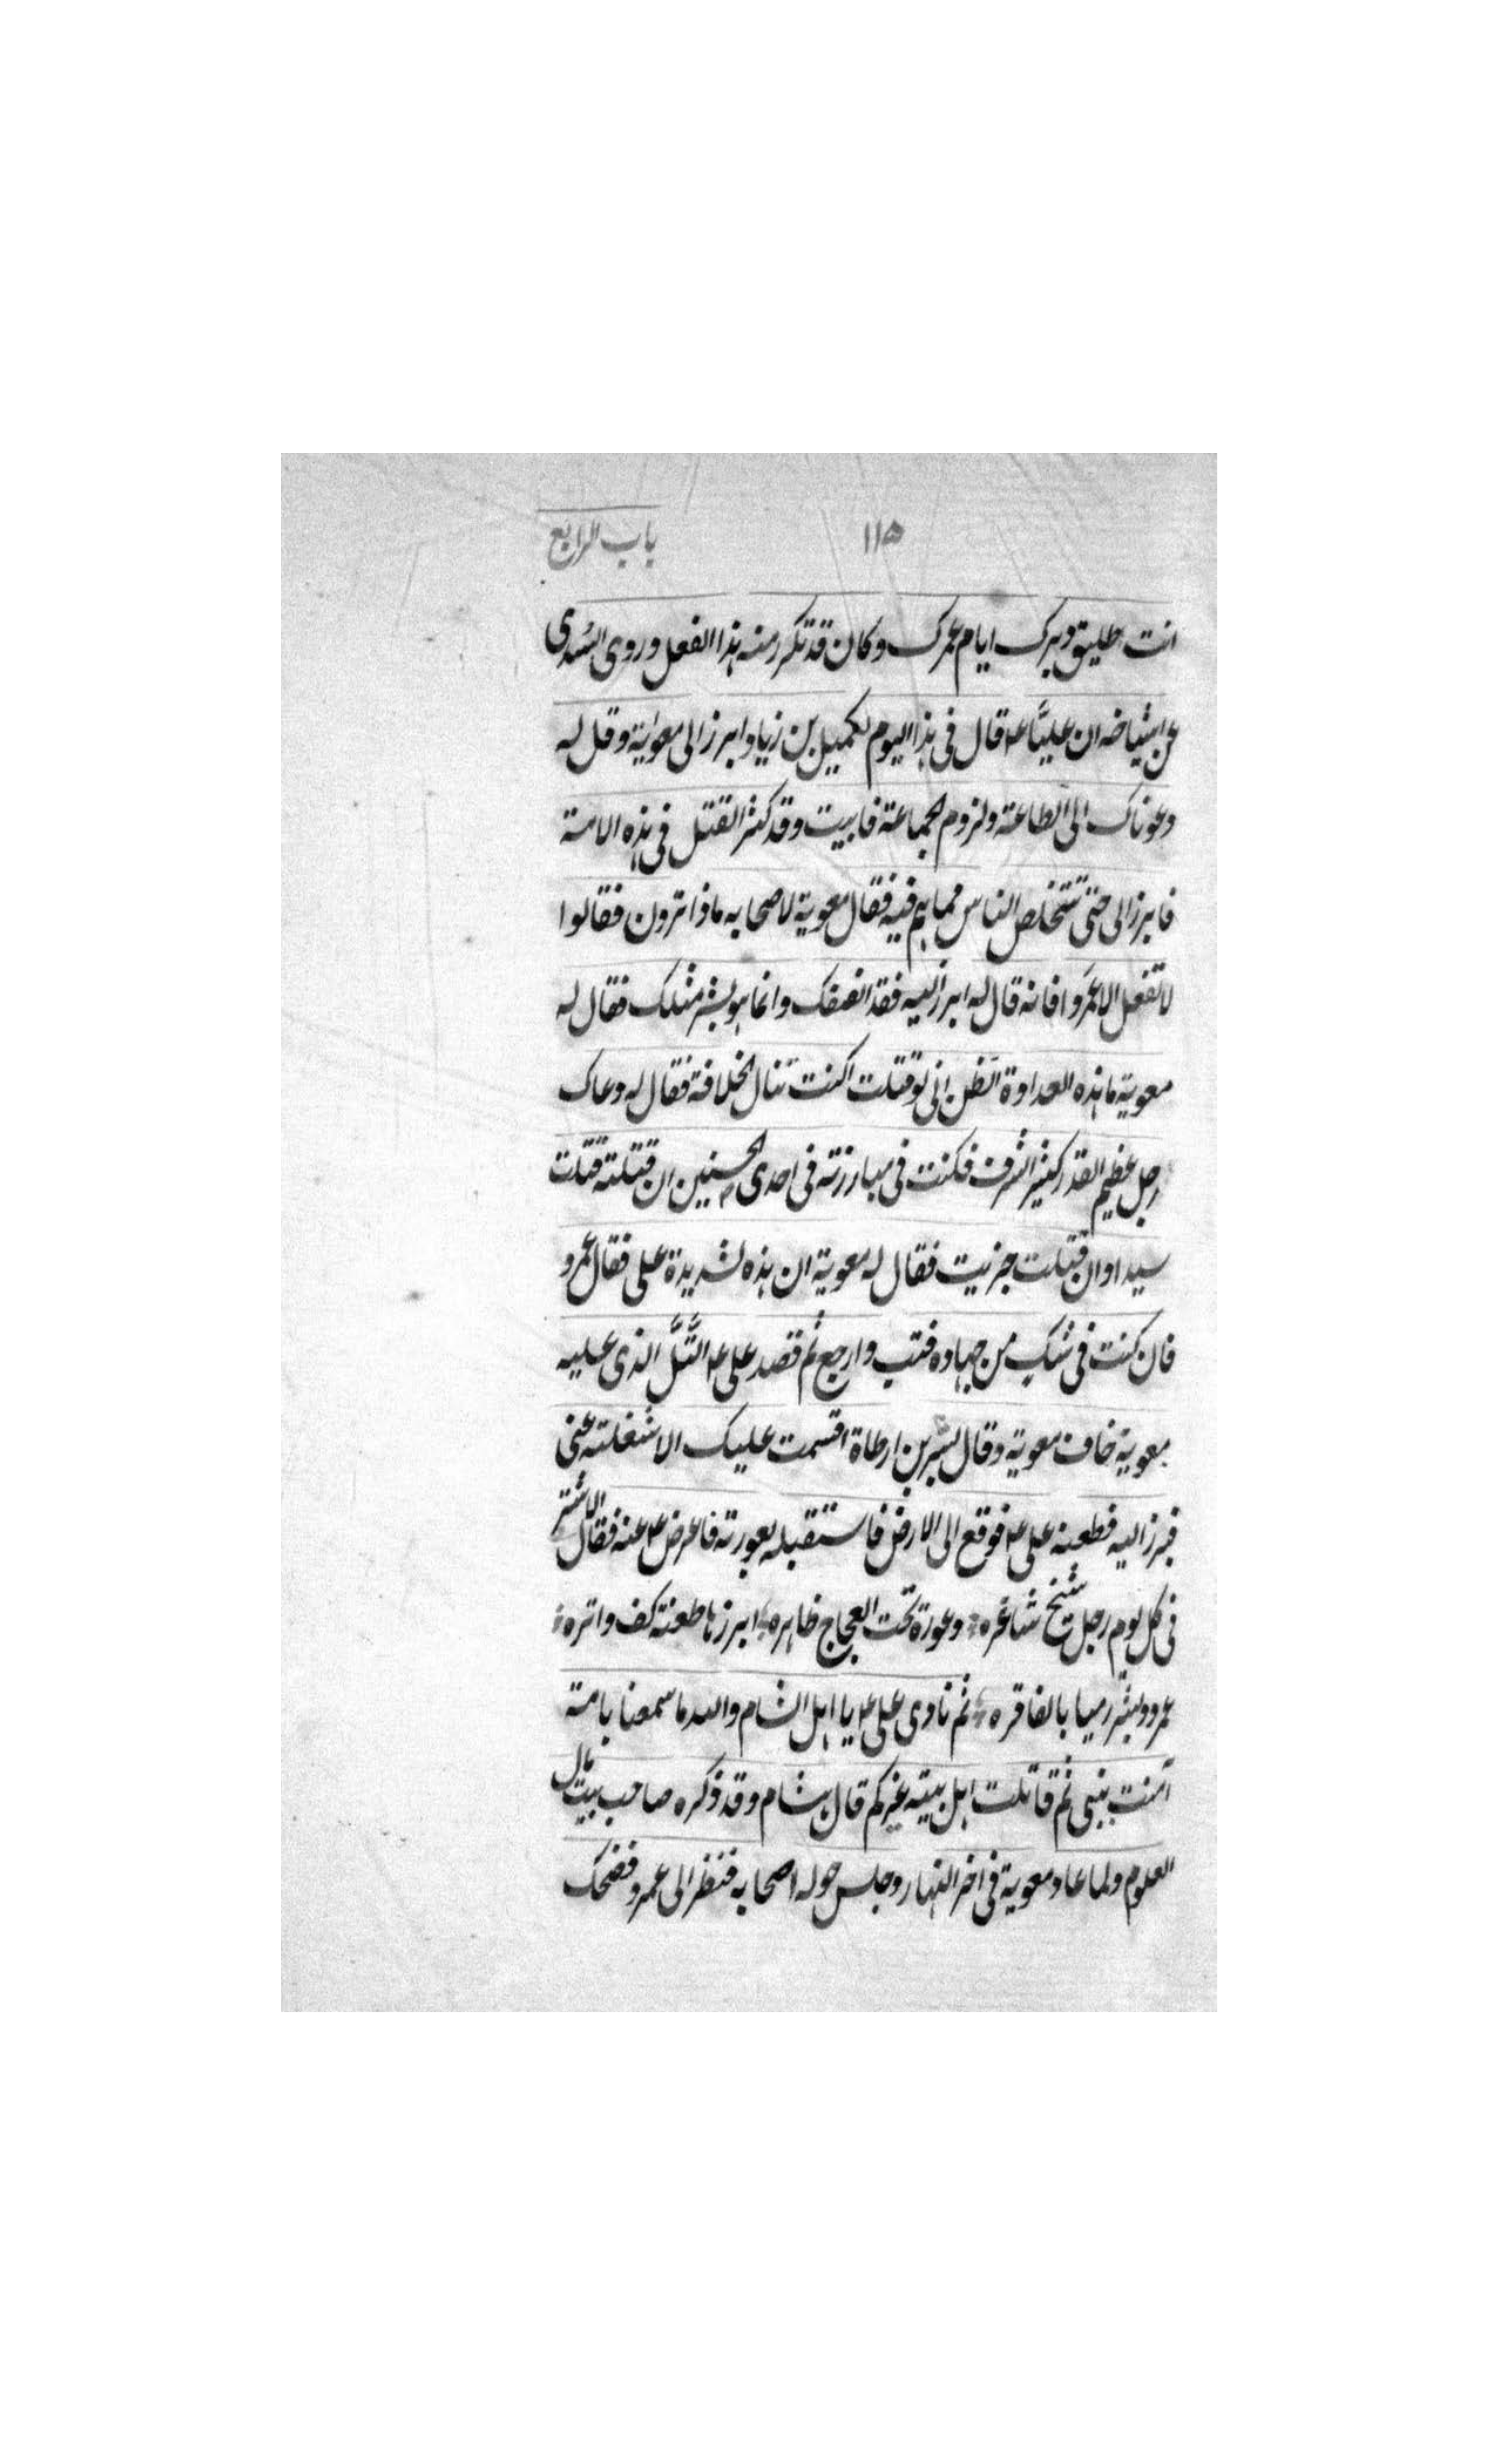 باب الرابع ١١٥
انت طليق دبرك ايام عمرك وكان قد تكرر منه هذا الفعل وروى السُدى
عن اشياخه ان عليًّا ع م قال فى هذا اليوم لكميل بن زياد ابرز الى معوية وقل له
دعوناك الى الطاعة ولزوم الجماعة فابيت وقد كثر القتل فى هذه الامة
فابرز الى حتى تتخلص الناس مما هم فيه فقال معوية لاصحابه ماذا ترون فقالوا
لا تفعل الا عمَروا فانه قال له ابرز اليه فقد انصفك وانما هو بشر مثلك فقال له
معوية ما هذه العداوة اتظن انى لو قتلت اكنت تنال الخلافة فقال له دعاك
رجل عظيم القدر كثير الشرف فكنت فى مبارزته فى احدى الحسنيين ان قتلته قتلت
سيدا وان قتلت جزيت فقال له معوية ان هذه لشديدة على فقال عمرو
فان كنت فى شك من جهاده فتب وارجع ثم قصد على ع م التَّلَّ الذى عليه
معوية خاف معوية وقال لبسر بن ارطاة اقسمت عليك الا شغلته عنى
فبرز اليه فطعنه على ع م فوقع الى الارض فاستقبله بعورته فاعرض ع م عنه فقال الاشتر
فى كل يوم رجل شيخ شاغره وعورة تحت العجاج ظاهره ابرزها طعنة كف واتره
عمرو وبشر رميا بالفاقره ثم نادى على ع م يا اهل الشام والله ما سمعنا بامة
آمنت بنبى ثم قاتلت اهل بيته غيركم قال هشام وقد ذكره صاحب بيت مال
العلوم ولما عاد معوية فى اخر النهار وجلس حوله اصحابه فنظر الى عمرو فضحك